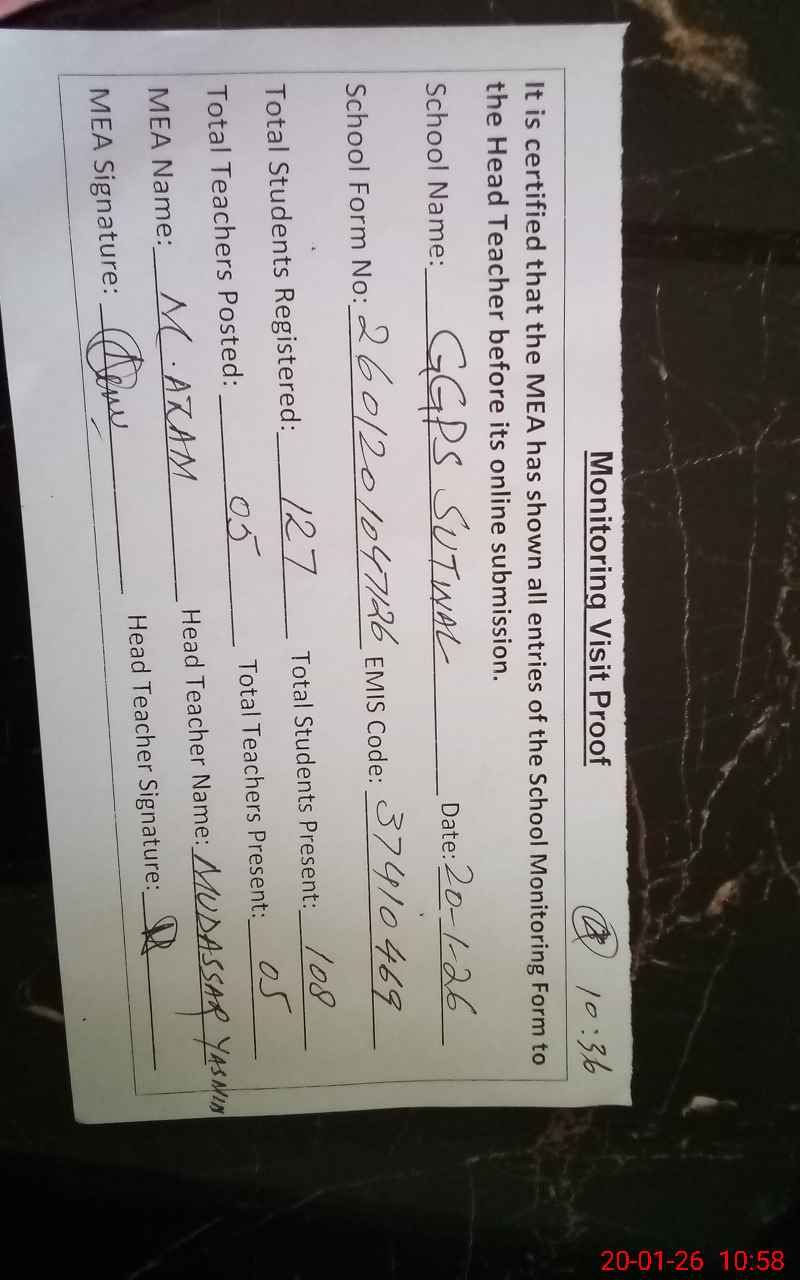 Monitoring Visit Proof
10:36
It is certified that the MEA has shown all entries of the School Monitoring Form to
the Head Teacher before its online submission.
School Name: GGPS SUTWAL Date: 20-1-26
School Form No: 2601201047126 EMIS Code: 37410469
Total Students Registered: 127 Total Students Present: 108
Total Teachers Posted: 05 Total Teachers Present: 05
MEA Name: M. AZAM Head Teacher Name: MUDASSAR YASMIN
MEA Signature: Head Teacher Signature:
20-01-26 10:58